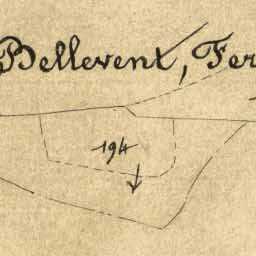 Bellevent, Fer
194